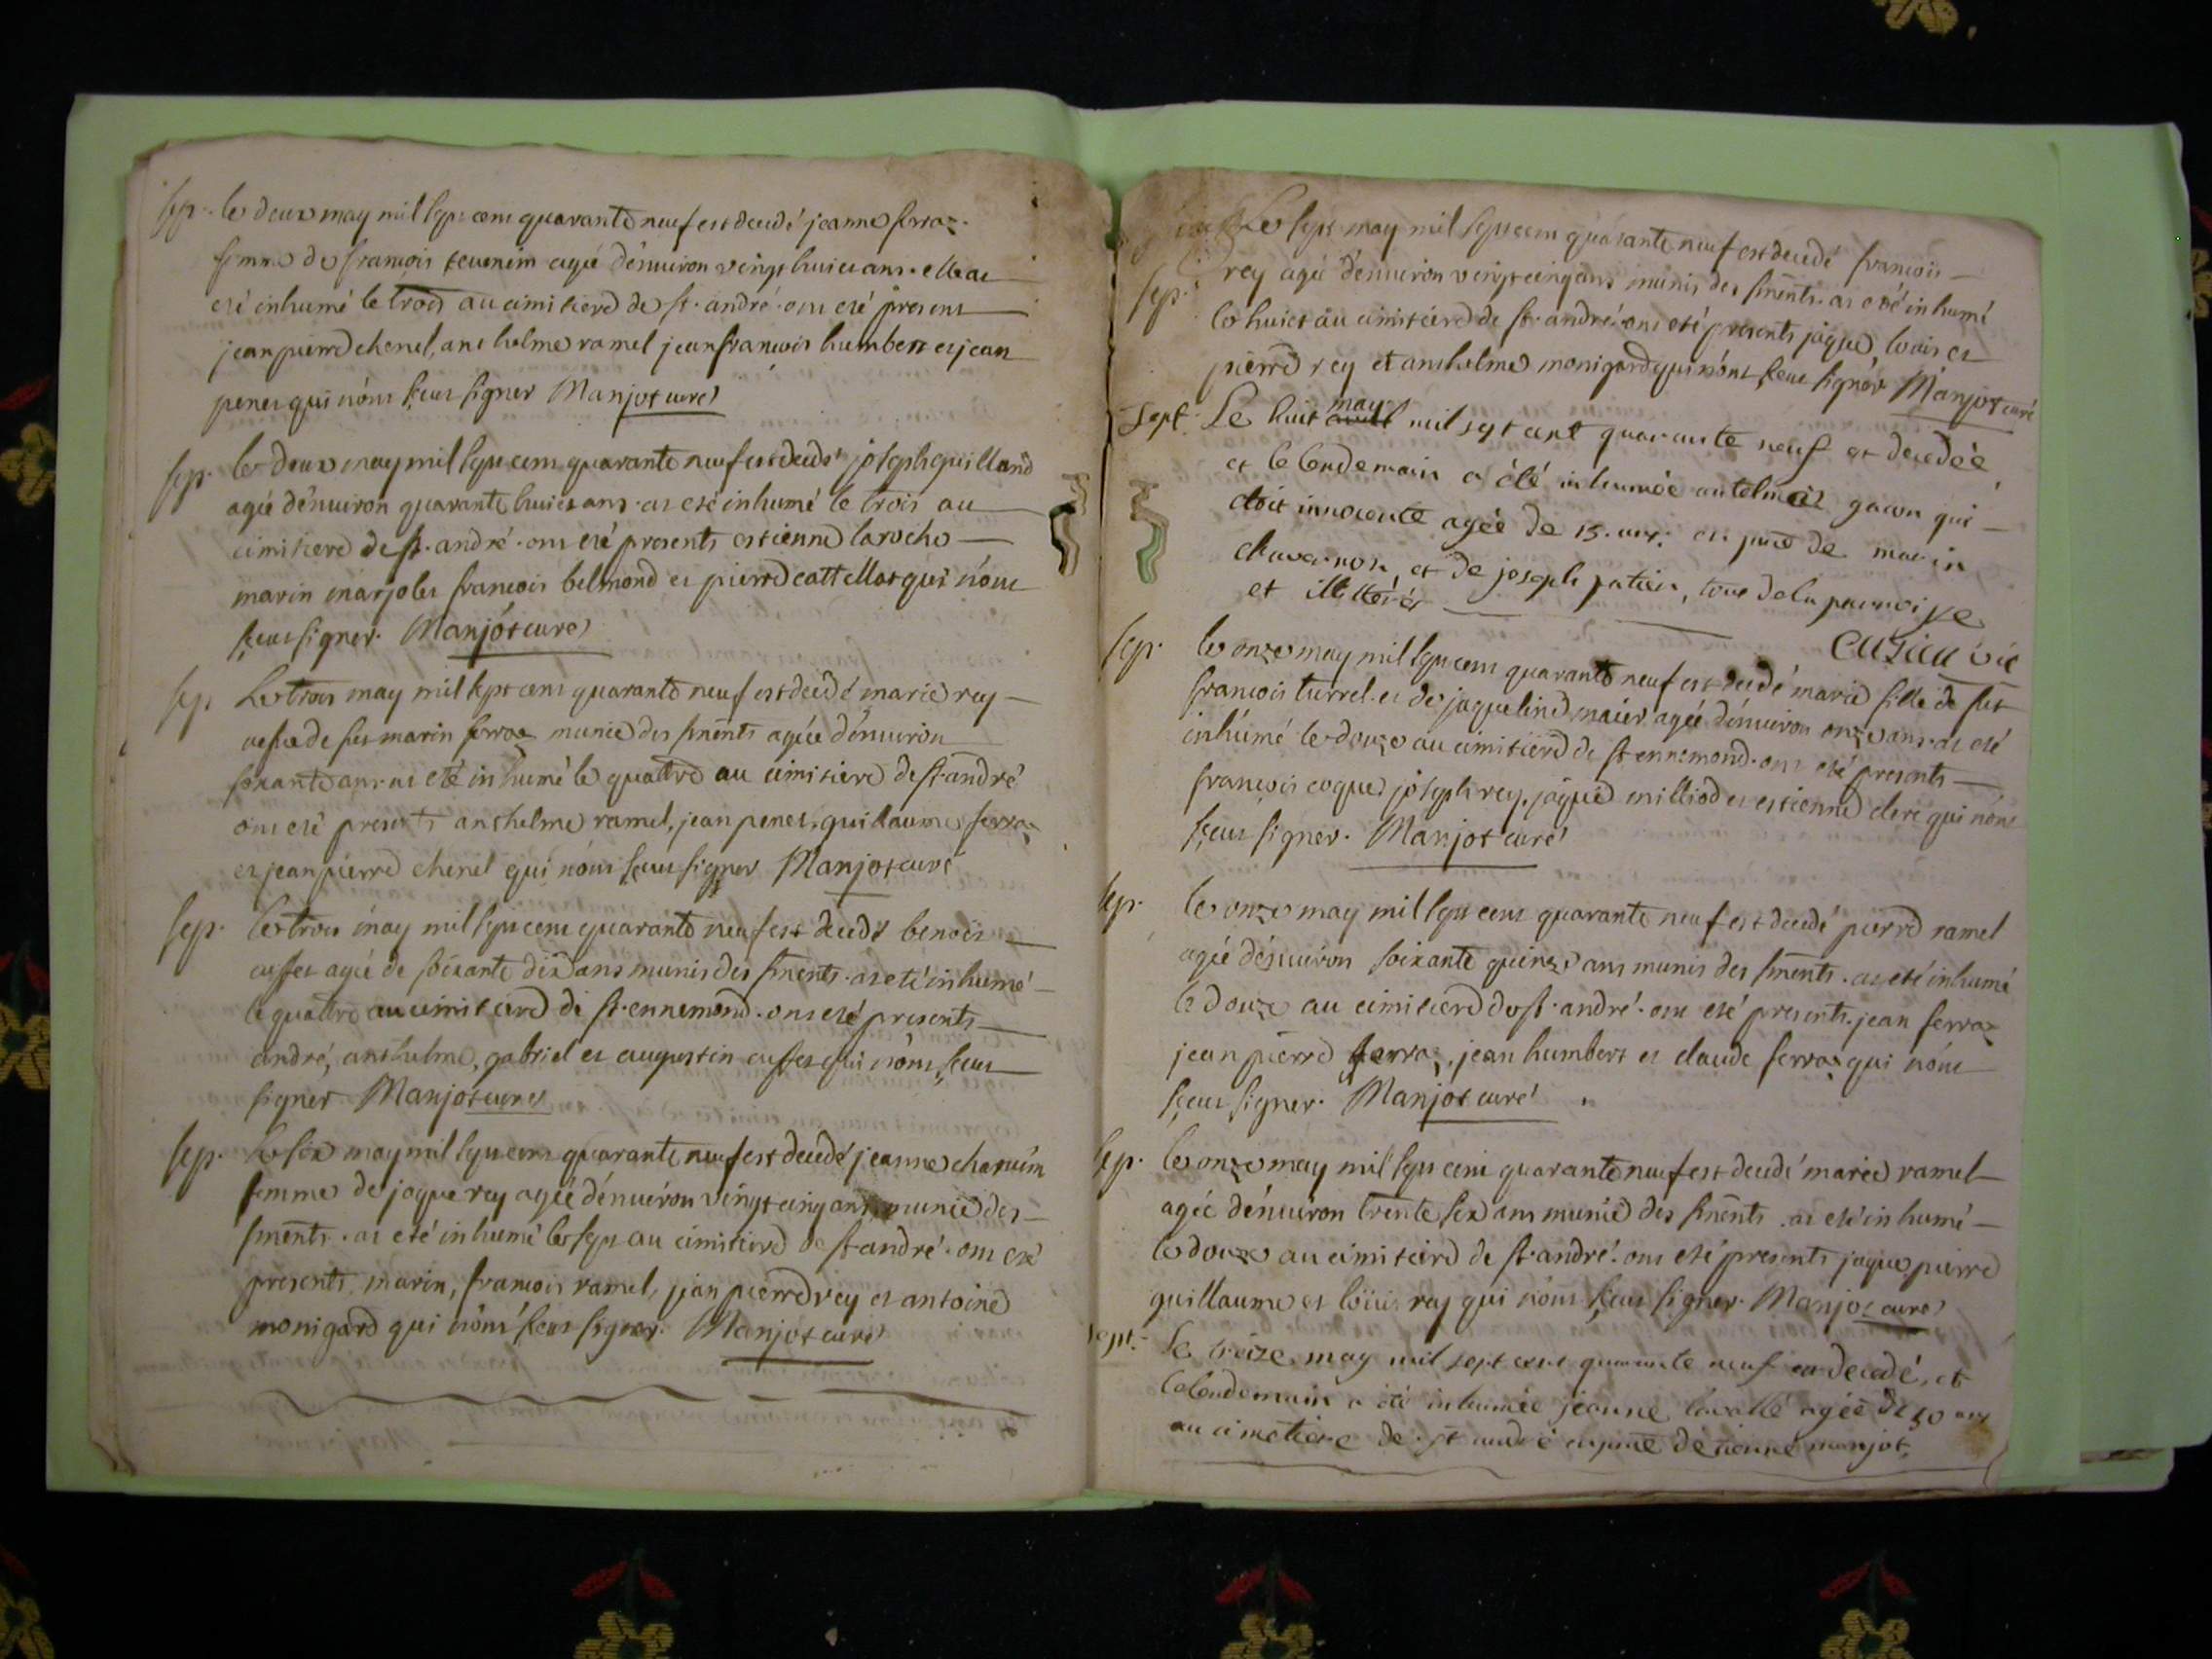 sep. le deux may mil sept cent quarante neuf est decedé jeanne ferraz
femme de francois teuenin agée d'enuiron vingt huict ans. elle at
eté inhumé le trois au cimitiere de st. andré. ont eté present
jean pierre chenel, anthelme ramel jean francois humbert et jean
penet qui n'ont sceus signer Manjot curé
sep. le deux may mil sept cent quarante neuf est decedé joseph guilland
agée d'enuiron quarante huict ans. at eté inhumé le trois au
cimitiere de st. andré. ont eté presents estienne laroche
marin marjolet francois belmond et pierre cattellot qui n'ont
sceus signer. Manjot curé
sep. Le trois may mil sept cent quarante neuf est decedé marie rey
vefue de fut marin ferraz munie des smēnts agée d'enuiron
soixante ans. at eté inhumé le quattre au cimitiere de st. andré
ont eté presents anthelme ramel, jean penet, guillaume ferraz
et jean pierre chenel qui n'ont sceus signer Manjot curé
sep. le trois may mil sept cent quarante neuf est decedé benoit
cusset agée de soixante dix ans munis des smēnts. at eté inhumé
le quattre au cimitiere de st. ennemond. ont eté presents
andré, anthelme, gabriel et augustin cusset qui n'ont sceus
signer Manjot curé
sep. le six may mil sept cent quarante neuf est decedé jeanne chanuin
femme de jaque rey agée d'enuiron vingt cinq ans munie des
smēnts. at eté inhumé le sept au cimitiere de st andré. ont eté
presents marin, francois ramel, jean pierre rey et antoine
monigard qui n'ont sceus signer. Manjot curé
Le sept may mil sept cent quarante neuf est decedé francois
sep. rey agée d'enuiron vingt cinq ans munis des smēnts. at eté inhumé
le huict au cimitiere de st. andré. ont eté presents jaque, louis et
pierre rey et anthelme monigard qui n'ont sceus signér Manjot curé
sept. Le huit may mil sept cent quarante neuf est decedée
et le lendemain a été inhumée antelmaz gacon qui
étoit innocente agée de 15. ans. en pnce de marin
chavanon et de joseph patier, tous de la parroisse
et illitterés
cuzieu vic
sep. le onze may mil sept cent quarante neuf est decedé marie fille de fut
francois turrel. et de jaqueline maier agée d'enuiron onze ans. at eté
inhumé le douze au cimitiere de st ennemond. ont eté presents
francois coque, joseph rey, jaque milliod et estienne clere qui n'ont
sceus signer. Manjot curé
sep. le onze may mil sept cent quarante neuf est decedé pierre ramel
agée d'enuiron soixante quinze ans munis des smēnts. at eté inhumé
le douze au cimitiere de st. andré. ont eté presents. jean ferraz
jean pierre ferraz, jean humbert et claude ferraz qui n'ont
sceus signer. Manjot curé
sep. le onze may mil sept cent quarante neuf est decedé marie ramel
agée d'enuiron trente six ans munie des smēnts. at eté inhumé
le douze au cimitiere de st. andré. ont eté presents jaque, pierre
guillaume et loüis rey qui n'ont sceus signer. Manjot curé
sept. Le treize may mil sept cent quarante neuf est decedé, et
le lendemain a été inhumée jeanne lavallé agée de 50 ans
au cimetiere de st andré en pnce d'etienne manjot.